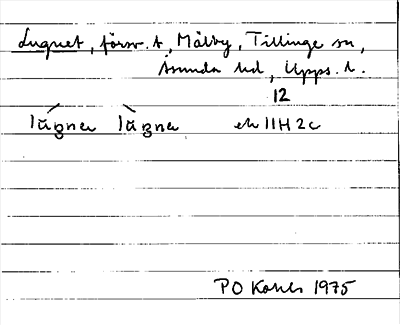 Lugnet, försv. t, Målby, Tillinge sn,
Åsunda hd, Upps. l.
12
lúgnea lùgnea ek 11H 2c
PO 1975